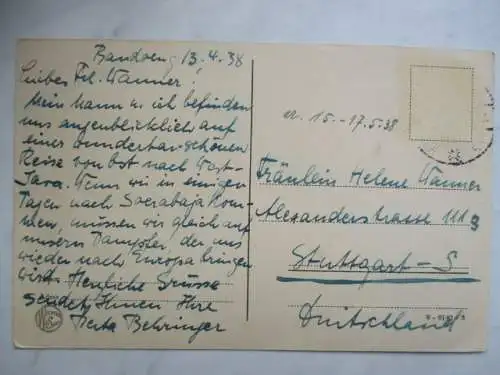 Bandoeng 13.4.38
Liebes Frl. Wanner!
Mein Mann u. ich befinden
uns augenblicklich auf
einer wunderbar schönen
Reise von Ost nach West-
Java. Wenn wir in einigen
Tagen nach Soerabaja kom-
men, müssen wir gleich auf
unsern Dampfer, der uns
wieder nach Europa bringen
wird. Herzliche Grüsse
sendet Ihnen Ihre
Herta Behringer
15.-17.5.38
Fräulein Helene Wanner
Alexanderstrasse
Stuttgart-S
Deutschland